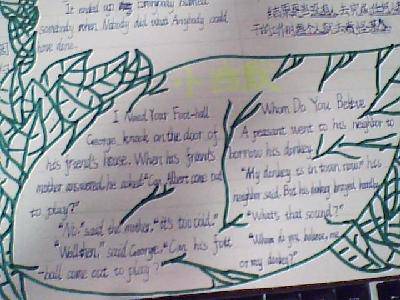 It ended up
somebody when Nobody did what Anybody could
have done.
小百歌
I Need Your Foot-ball
George knock on the door of
his friend's house. When his friend's
mother answered, he asked "Can Albert come out
to play?"
"No." said the mother, "it's too cold."
"Well then," said George, "Can his foot
-ball come out to play?"
Whom Do You Believe
A peasant went to his neighbor to
borrow his donkey.
"My donkey is in town now" his
neighbor said. But his donkey brayed
"What's that sound?"
"Whom do you believe, me,
or my donkey?"